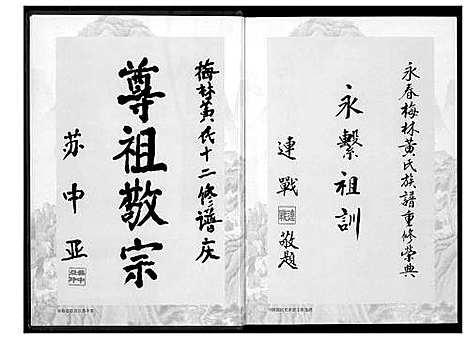 永春梅林黃氏族譜重修榮典
永繫祖訓
連戰
敬題
梅林黄氏十二修谱庆
尊祖敬宗
苏中亚